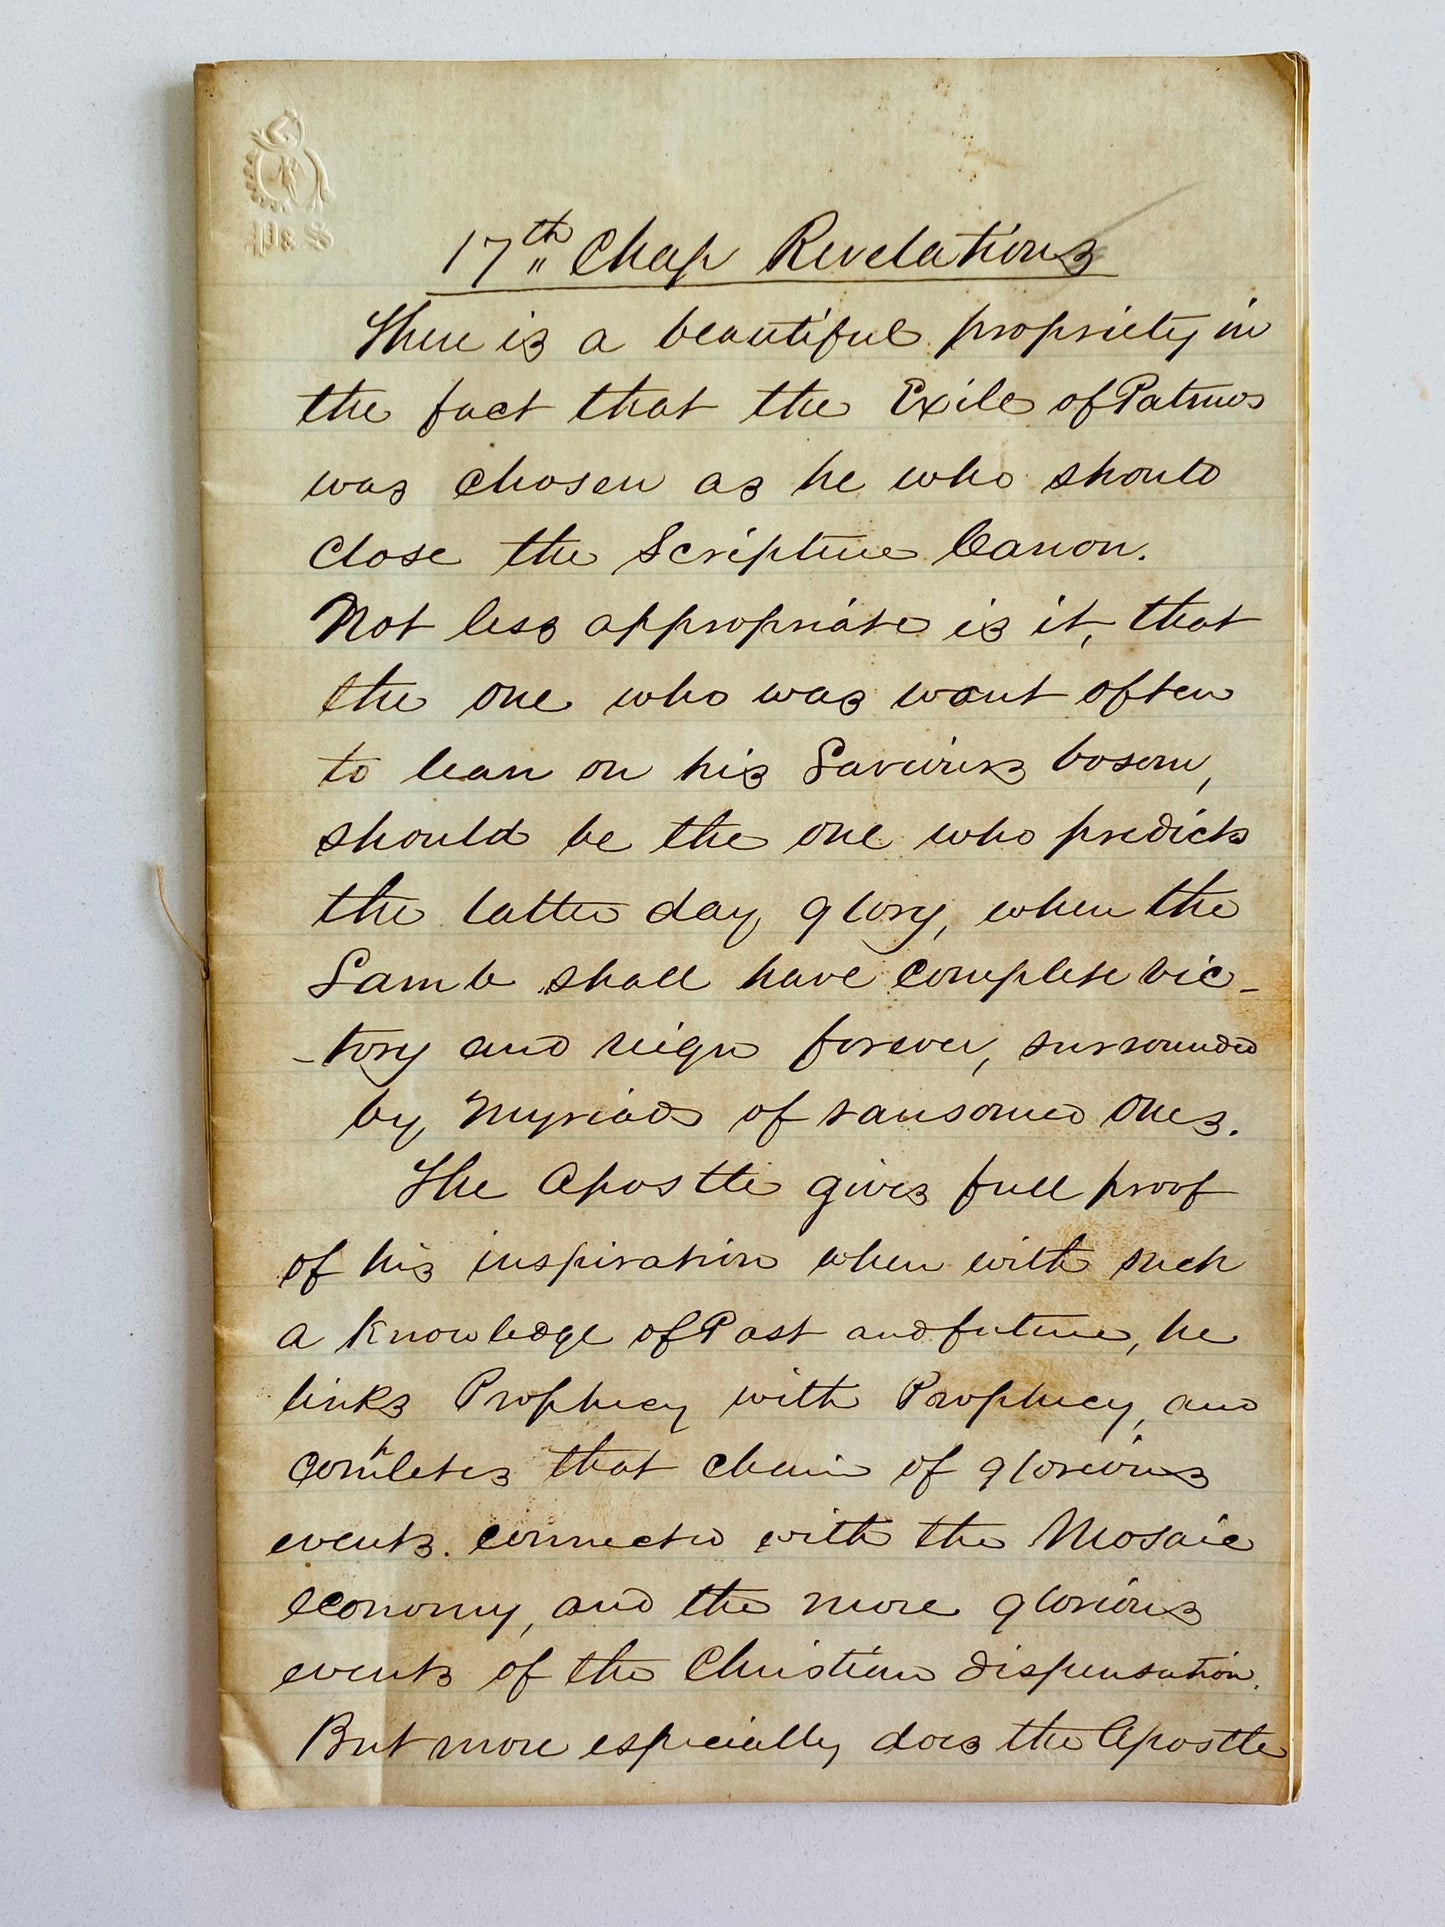 17th Chap Revelations
There is a beautiful propriety in
the fact that the Exile of Patmos
was chosen as he who should
close the Scripture Canon.
Not less appropriate is it, that
the one who was wont often
to lean on his Saviours bosom,
should be the one who predicts
the latter day glory, when the
Lamb shall have complete vic-
-tory and reign forever, surrounded
by myriads of ransomed ones.
The Apostle gives full proof
of his inspiration when with such
a knowledge of Past and future, he
links Prophecy with Prophecy, and
completes that chain of glorious
events connected with the Mosaic
economy, and the more glorious
events of the Christian dispensation.
But more especially does the Apostle